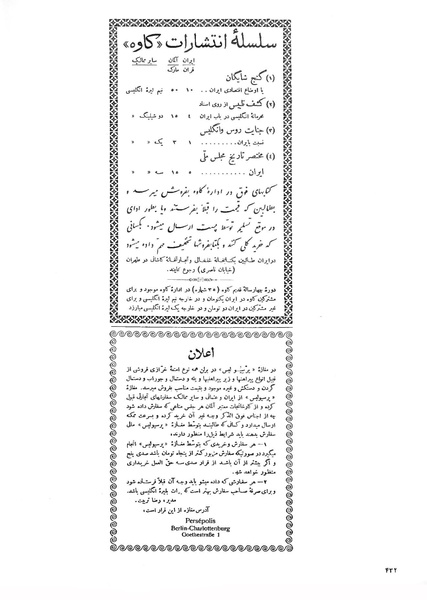 سلسلهٔ انتشارات «کاوه»
ایران آلمان سایر ممالک
قران مارک
(۱) گنج شایگان
یا اوضاع اقتصادی ایران .. ۱۰ ۵۰ نیم لیرهٔ انگلیسی
(۲) کشف تلبیس از روی اسناد
محرمانهٔ انگلیسی در باب ایران ۴ ۱۵ دو شیلینگ »
(۳) جنایت روس و انگلیس
نسبت بایران ......... ۱ ۳ یک » »
(٤) مختصر تاریخ مجلس ملّی
ایران ........... ۵ ۱۵ سه » »
کتابهای فوق در ادارهٔ کاوه بفروش میرسد و
بطالبین که قیمت را قبلاً بفرستند و یا بطور ادای
در موقع تسلیم توسط پست ارسال میشود. بکسانی
که خرید کلی کنند و بکتابفروشها تخفیف هم داده میشود
در ایران طالبین بکتابخانهٔ و تجارتخانهٔ کاشانی در طهران
(خیابان ناصری) رجوع نمایند.
دورهٔ چهارسالهٔ قدیم کاوه (۳۵ شماره) در ادارهٔ کاوه موجود و برای
مشترکین کاوه در ایران یکتومان و در خارجه نیم لیرهٔ انگلیسی و برای
غیر مشترکین در ایران دو تومان و در خارجه یک لیرهٔ انگلیسی
اعلان
در مغازهٔ «پرسپولیس» در برلن همه نوع خرازی فروشی از
قبیل انواع پیراهنها و زیر پیراهنیها و یقه و دستمال و جوراب و دستمال
گردن و دستکش و غیره موجود و بقیمت مناسب بفروش میرسد. مغازهٔ
«پرسپولیس» از ایران و عثمانی و سایر ممالک سفارشهای تجارتی قبول
کرده و از کارخانجات معتبر آلمان هر جنس متاعی که سفارش داده شود
چه از اجناس فوق الذکر و چه غیر آن خرید کرده و بسرعت ممکنه
ارسال میدارد و کسانی که طالبند بتوسط مغازهٔ «پرسپولیس» مالی
سفارش بدهند باید شرایط ذیل را منظور دارند.
۱— هر سفارش و خریدی که بتوسط مغازهٔ «پرسپولیس» انجام
میگیرد در صورتیکه سفارش مزبور کمتر از پنجاه تومان باشد صدی پنج
و اگر بیشتر از آن باشد از قرار صدی سه حق العمل خریداری
منظور خواهد شد.
۲— هر سفارشی که داده میشود باید وجه آن قبلاً فرستاده شود
و برای صرفهٔ صاحب سفارش بهتر است که برات بلیرهٔ انگلیسی باشد.
مدیر: رضا تربیت.
آدرس مغازه از این قرار است:
Persépolis
Berlin-Charlottenburg
Goethestraße 1
۴۲۲